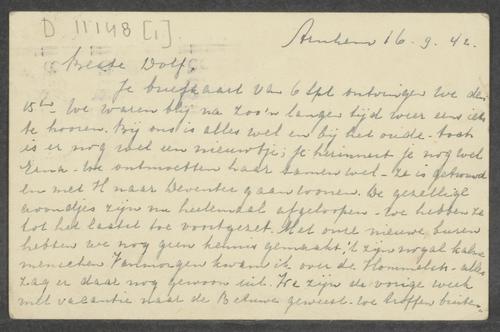 D 11148 [1]
Arnhem 16. 9. 42.
Beste Dolf,
Je briefkaart van 6 Spt ontvingen we den
15en. We waren blij na zoo'n langen tijd weer eens iets
te hooren. Bij ons is alles wel en bij het oude. toch
is er nog wel een nieuwtje; je herinnert je nog wel
Erna - We ontmoetten haar samen wel - Ze is getrouwd
en met H naar Deventer gaan wonen. De gezellige
avondjes zijn nu heelemaal afgeloopen - we hebben ze
tot het laatst toe voortgezet. Met onze nieuwe buren
hebben we nog geen kennis gemaakt, 't zijn nogal kale
menschen. Vanmorgen kwam ik over de Hommelstr. - alles
zag er daar nog gewoon uit. We zijn de vorige week
met vacantie naar de Betuwe geweest. We troffen buiten-